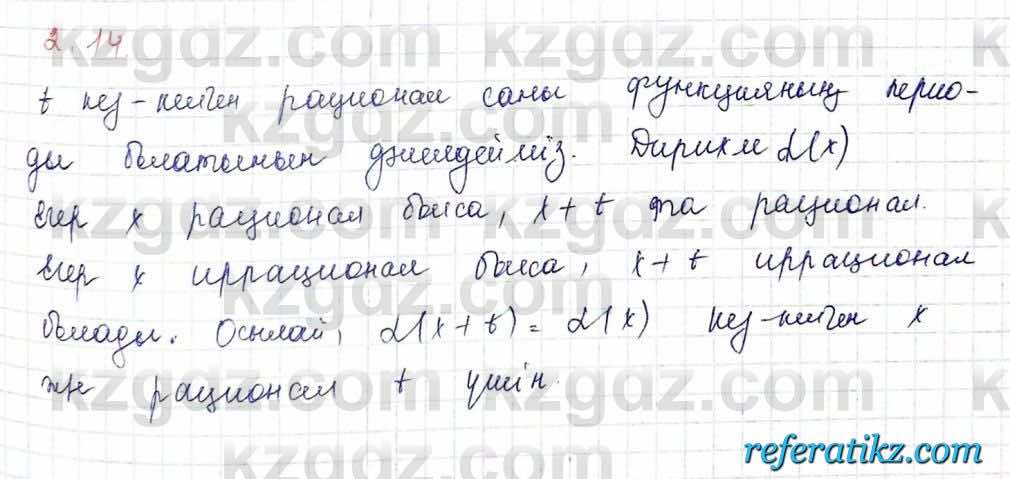 2.14
t кез-келген рационал саны функцияның перио-
ды болатынын дәлелдейміз. Дирихле d(x)
Егер x рационал болса, x+t та рационал.
Егер x иррационал болса, x+t иррационал
болады. Осылай, d(x+t)=d(x) кез-келген x
және рационал t үшін.
kzgdz.com
referatikz.com